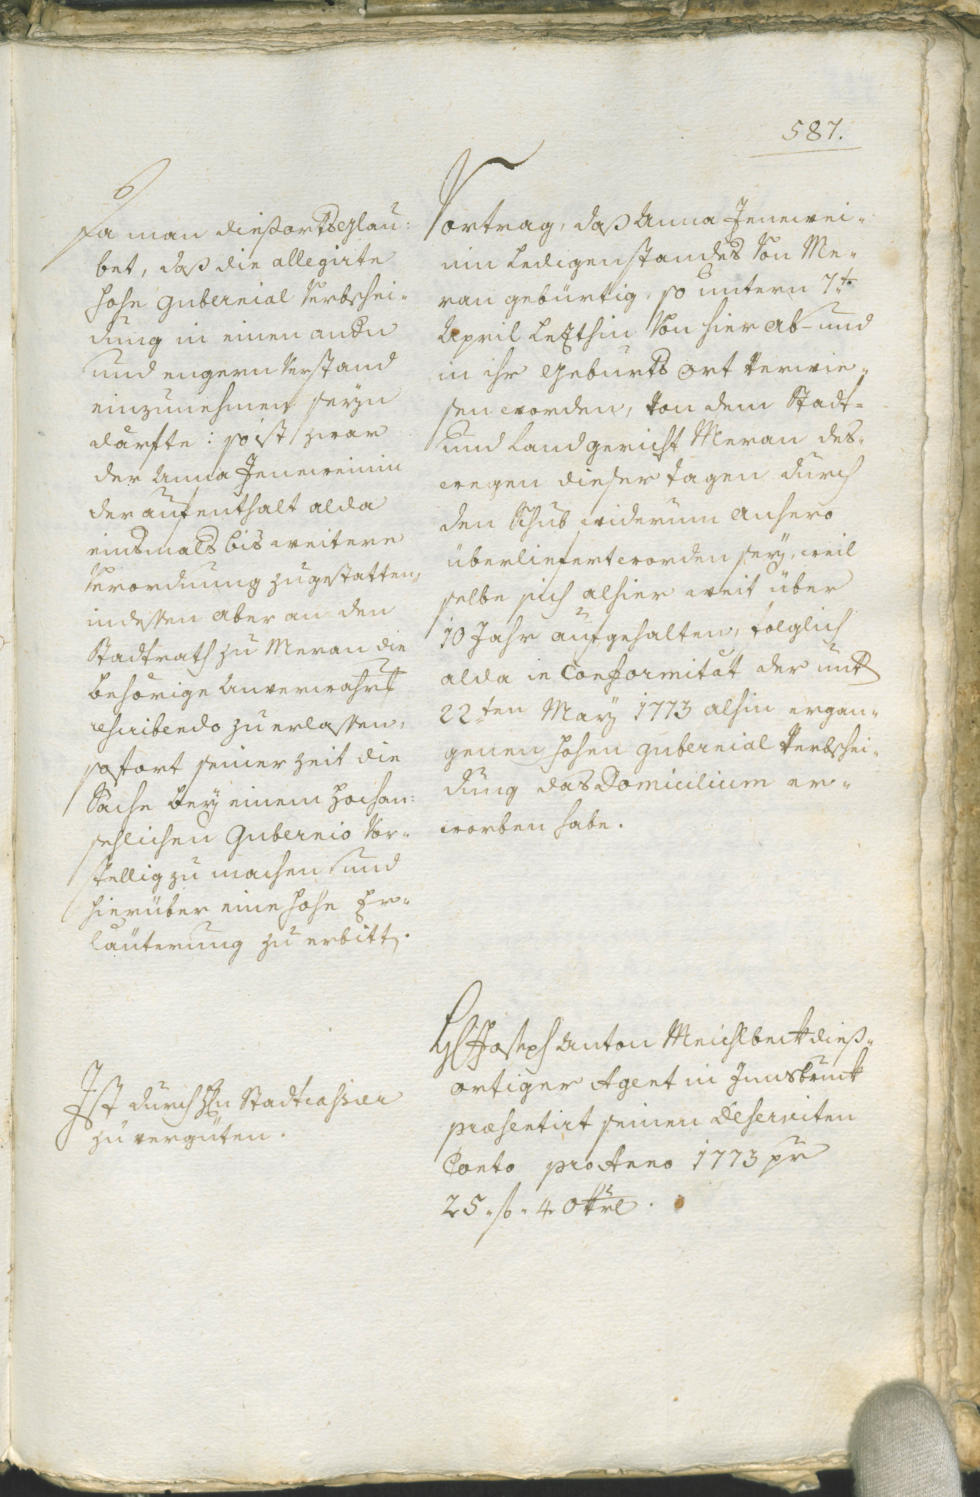 587.
Da man dießorts glau:
bet, daß die allegirte
hohe Gubernial Verbschei-
dung in einen andn
und engern Verstand
einzunehmen seyn
därfte: so ist zwar
der Anna Jeneweinin
der aufenthalt alda
eindmals bis weitere
Verordnung zugestatten,
indessen aber an den
Stadtrath zu Meran die
behörige Anverwahrg
rescribendo zu erlassen,
sofort seiner zeit die
Sache bey einem hochan:
sehlichen Gubernio Vor-
stellig zu machen und
hierüber eine hohe Er-
läuterung zu erbitt.
Vortrag, daß Anna Jenewei-
nin ledigen standes Von Me-
ran gebürtig, so untern 7t.
April letzthin Von hier ab- und
in ihr Geburts Ort verwie-
sen worden, von dem Stadt-
und Landgericht Meran des-
wegen dieser tagen durch
den Schub widerum anhero
überliefert worden sey, weil
selbe sich alhier weit über
10 Jahr aufgehalten, folglich
alda in Conformität der unt
22ten May 1773 alhin ergan-
genen hohen gubernial Verbschei-
dung das Domicilium er-
worben habe.
Ist durch Hn Stadtcassier
zu vergüten.
H Joseph Anton Meichlbeckh dieß-
ortiger Agent in Innsbruck
præsentirt seinen Deserviten
Conto pro Anno 1773 pr
25 f 40 xr